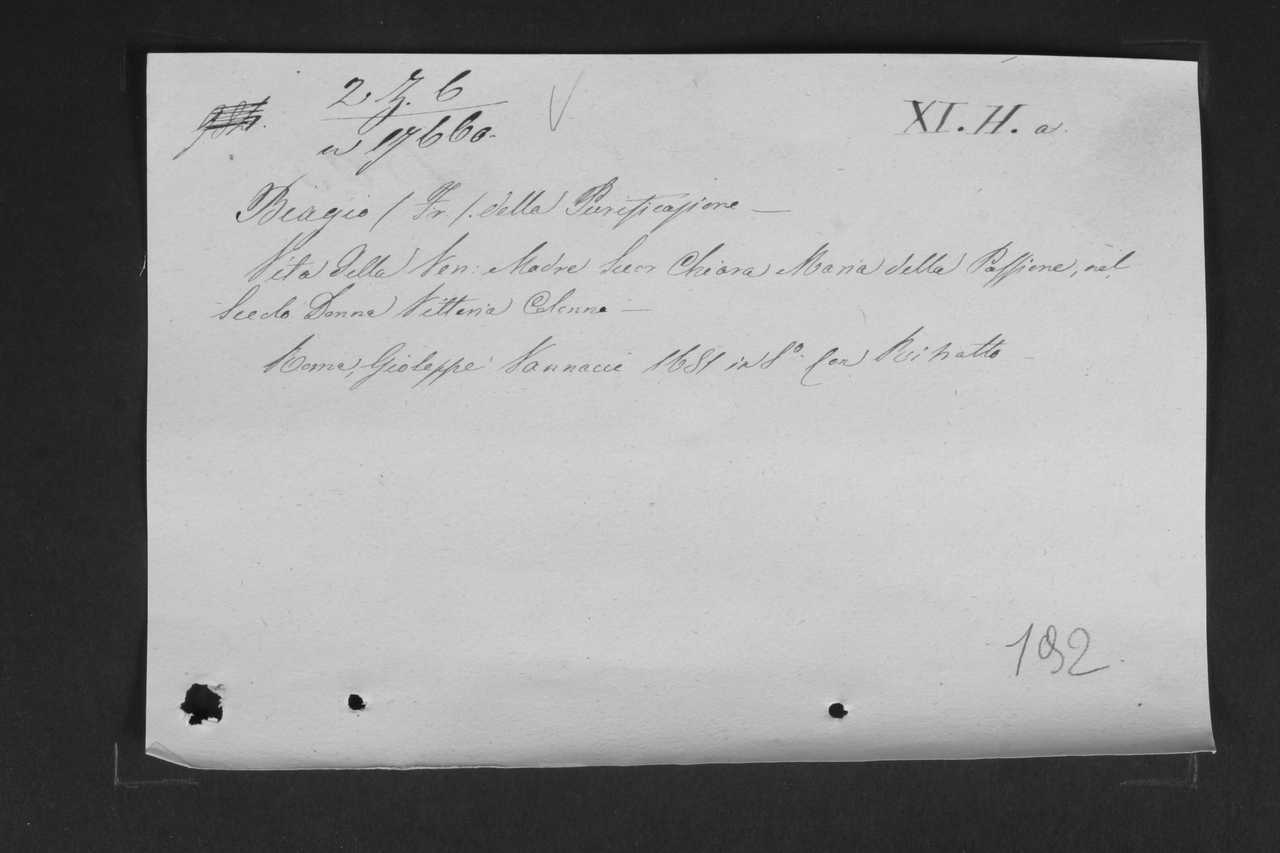 2 Z. 6 V XI. H. a.
u 17660.
Biagio (Fr). della Purificazione —
Vita della Ven: Madre Suor Chiara Maria della Passione, nel
Secolo Donna Vittoria Colonna —
Roma, Gioseppe Vannacci 1681 in 8º. con Ritratto
192